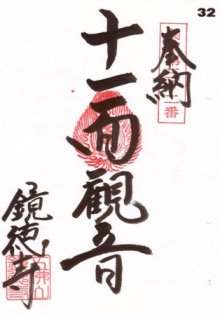 32
奉納
十一面観音
鏡徳寺